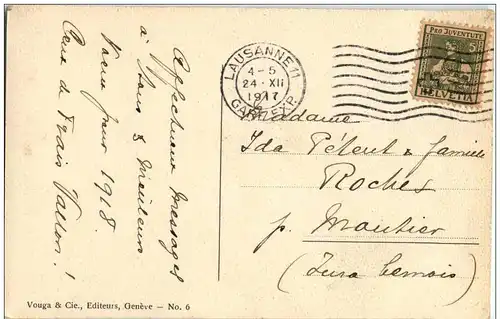 Affectueux Messages
à tous & Meilleurs
Voeux pour 1918.
Ceux de Frais Vallon!
Vouga & Cie., Editeurs, Genève — No. 6
LAUSANNE 11
4-5
24·XII
1917
GARE EXP.
PRO JUVENTUTE
5
HELVETIA
Madame
Ida Pétent & famille
Roches
p. Moutier
(Jura bernois)